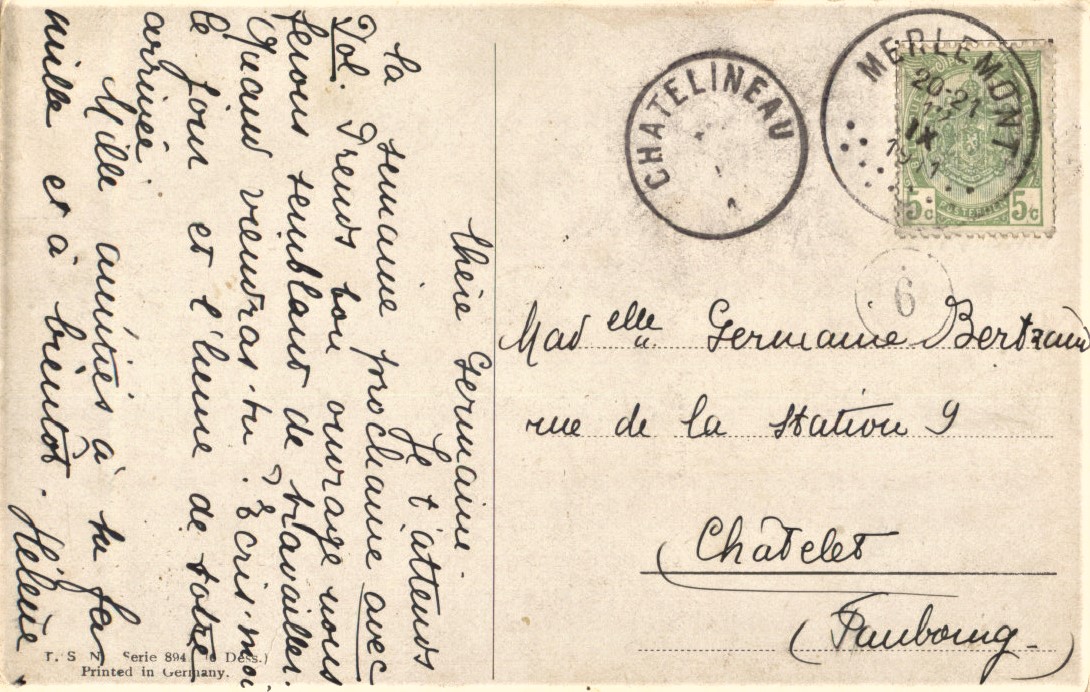 Chère Germaine.
Je t'attends
la semaine prochaine avec
Jol. Prends ton ouvrage nous
ferons semblant de travailler.
Quand viendras-tu? Ecris-moi
le jour et l'heure de votre
arrivée.
Mille amitiés à ta fa
mille et à bientôt. Hélène
T. S. N. Serie 894 (6 Dess.)
Printed in Germany.
CHATELINEAU
MERLEMONT
20-21
IX
5c 5c
6
Madelle Germaine Bertrand
rue de la Station 9
Châtelet
(Faubourg)